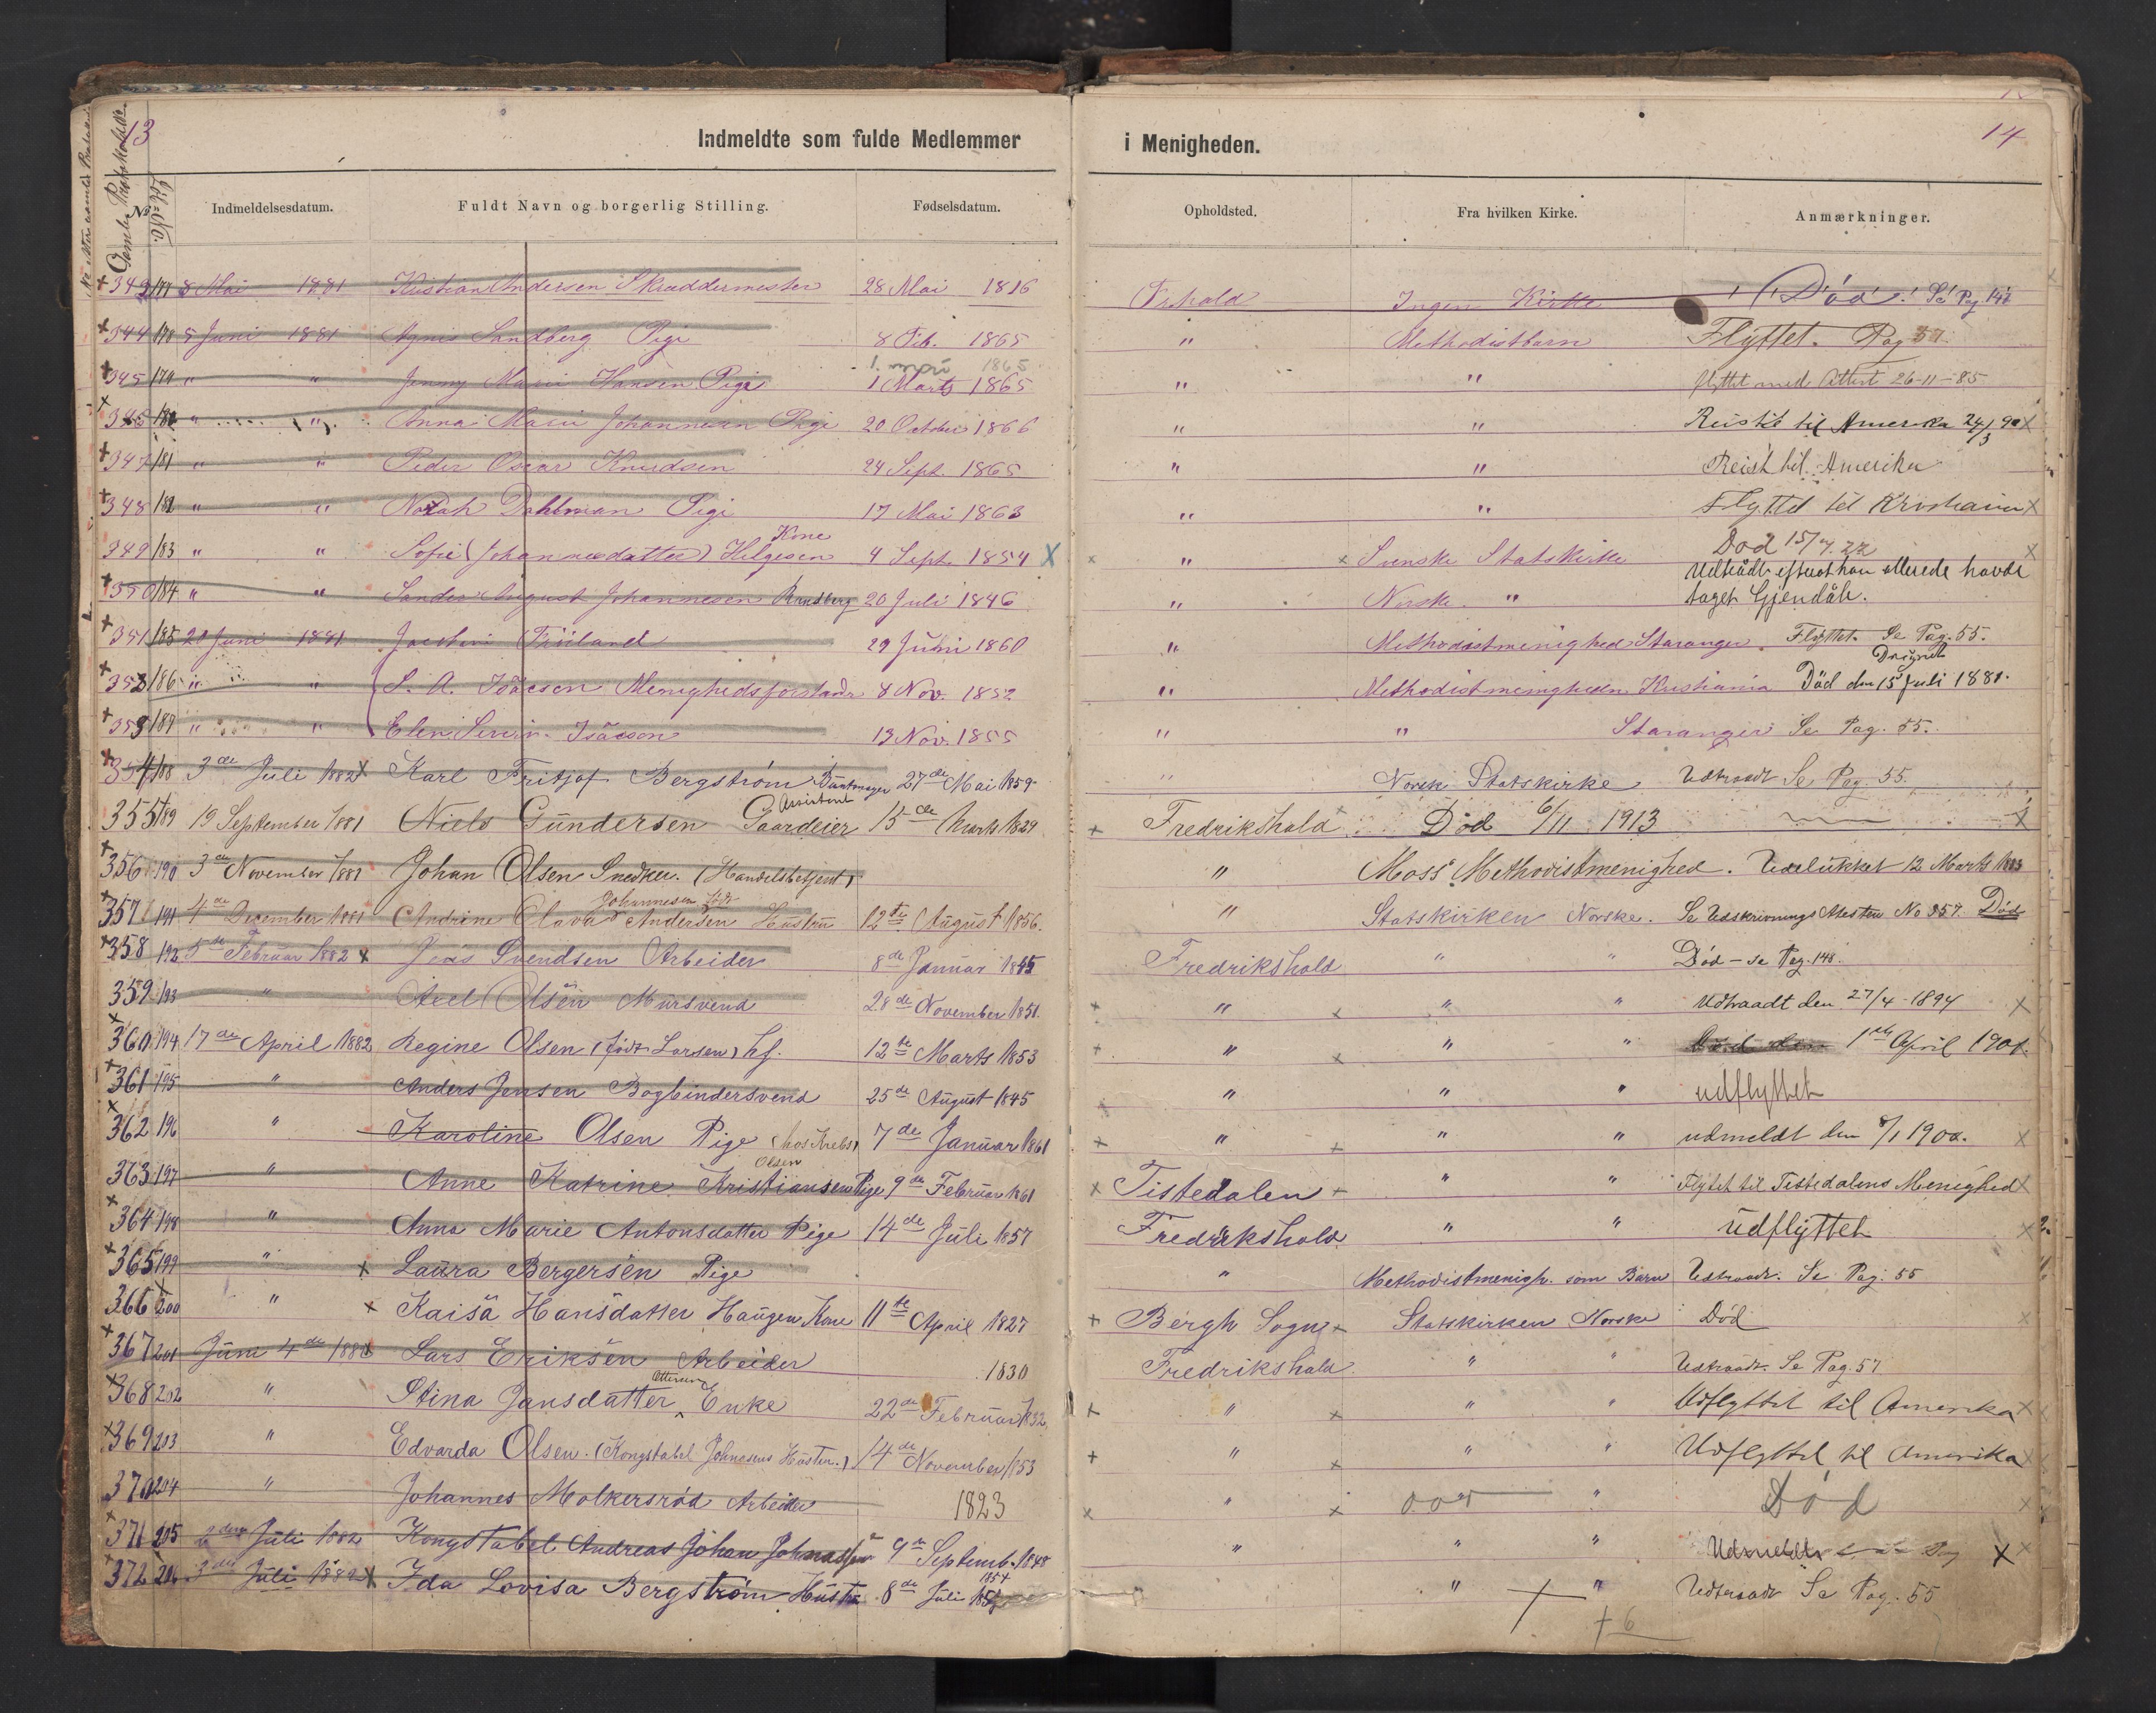 13
Indmeldte som fulde Medlemmer
i Menigheden.
14
Gamle Protokol
No
Indmeldelsesdatum. Fuldt Navn og borgerlig Stilling. Fødselsdatum. Opholdsted. Fra hvilken Kirke. Anmærkninger.
343 177 8 Mai 1881 Kristian Andersen Skræddermester 28 Mai 1816 Frhald Ingen Kirke Död! Se Pag 147
344 178 5 Juni 1881 Agnes Sandberg Pige 8 Feb. 1865 " Methodistbarn Flyttet. Pag 57.
1. 1865
345 179 " " Jenny Marie Hansen Pige 1 Marts 1865 " " flyttet med Attest 26-11-85
345 180 " " Anna Marie Johannesen Pige 20 October 1866 " " Reist til Amerika 24/3 90 X
347 181 " " Peder Oscar Knudsen 24 Sept. 1865 " " Reist til Amerika
348 182 " " Norah Dahlman Pige 17 Mai 1863 " " Flyttet til Kristiania X
Kone
349 183 " " Sofie (Johannesdatter) Helgesen 4 Sept. 1854 X " Svenske Statskirke Död 15/7. 22 X
350 184 " " Sander August Johannesen Rundberg 20 Juli 1846 " Norske " Udtrådt efterat han allerede havde
taget Gjendåb.
351 185 20 Juni 1881 Jacobine Friiland 29 Juni 1860 " Methodistmenighed Stavanger. Flyttet Se Pag. 55.
352 186 " " S. A. Isäcsen Menighedsforstander 8 Nov. 1852 " Methodistmenigheden Kristiania Död den 15 Juli 1881.
353 187 " " Elen Isäcson 13 Nov. 1855 " " Stavanger Se Pag. 55.
354 188 3de Juli 1882 X Karl Fritjof Bergström 27de Mai 1859 " Norsk Statskirke Udtraadt Se Pag. 55.
Assistent
355 189 19 September 1881 Niels Gündersen Gaardeier 15de Marts 1829 Fredrikshald Död 6/11 1913 X
356 190 3de November 1881 Johan Olsen Snedker. (Handelsbetjent) " Moss Methodistmenighed. Udelukket 12 Marts 1883
Johannesen født
357 191 4de December 1881 Andrine Olava Andersen Hustru 12te August 1856. " Statskirken Norske. Se Udskrivnings Attesten No 357. Död
358 192 5te Februar 1882 X Jens Svendsen Arbeider 8de Januar 1845 Fredrikshald " " Död - se Pag. 148.
359 193 " Axel Olsen Mursvend 28de November 1851. " " " Udtraadt den 27/4 1894 X
360 194 17de April 1882 Regine Olsen (født Larsen) hf. 12te Marts 1853 " " " Död den 1ste April 1901.
361 195 " Anders Jensen Bogbindersvend 25de August 1845 " " " udflyttet
362 196 " Karoline Olsen Pige (hos Krebs) 7de Januar 1861 " " " udmeldt den 8/1 1900. X
Olsen
363 197 " Anne Katrine Kristiansen Pige 9de Februar 1861 Tistedalen " " Flyttet til Tistedalens Menighed X
364 198 " Anna Marie Antonsdatter Pige 14de Juli 1857 Fredrikshald " " Udflyttet X
365 199 " X Laura Bergersen Pige " Methodistmenigh. som Barn Udtraadt. Se Pag. 55
366 200 " X Kaisä Hansdatter Haugen Kone 11te April 1827 Bergh Sogn Statskirken Norske Död
367 201 Juni 4de 188 Lars Eriksen Arbeider 1830 Fredrikshald " " Udtraadt. Se Pag. 57
Ottersen
368 202 " Stina Jansdatter Enke 22de Februar 1832, " " " Udflyttet til Amerika X
369 203 " Edvarda Olsen. (Kongstabel Johnesens Hustru.) 14de November 1853 " " " Udflyttet til Amerika X
370 204 " Johannes Molkersröd Arbeider 1823 " " Död
371 205 Juli 1882 Kongstabel Andreas Johan Johnassen 9de Septemb. 1848 " " " Udmeldt X
1854
372 206 3de Juli 1882 X Ida Lovisa Bergström Hustru 8de Juli " " Udtraadt Se Pag. 55
+ 6